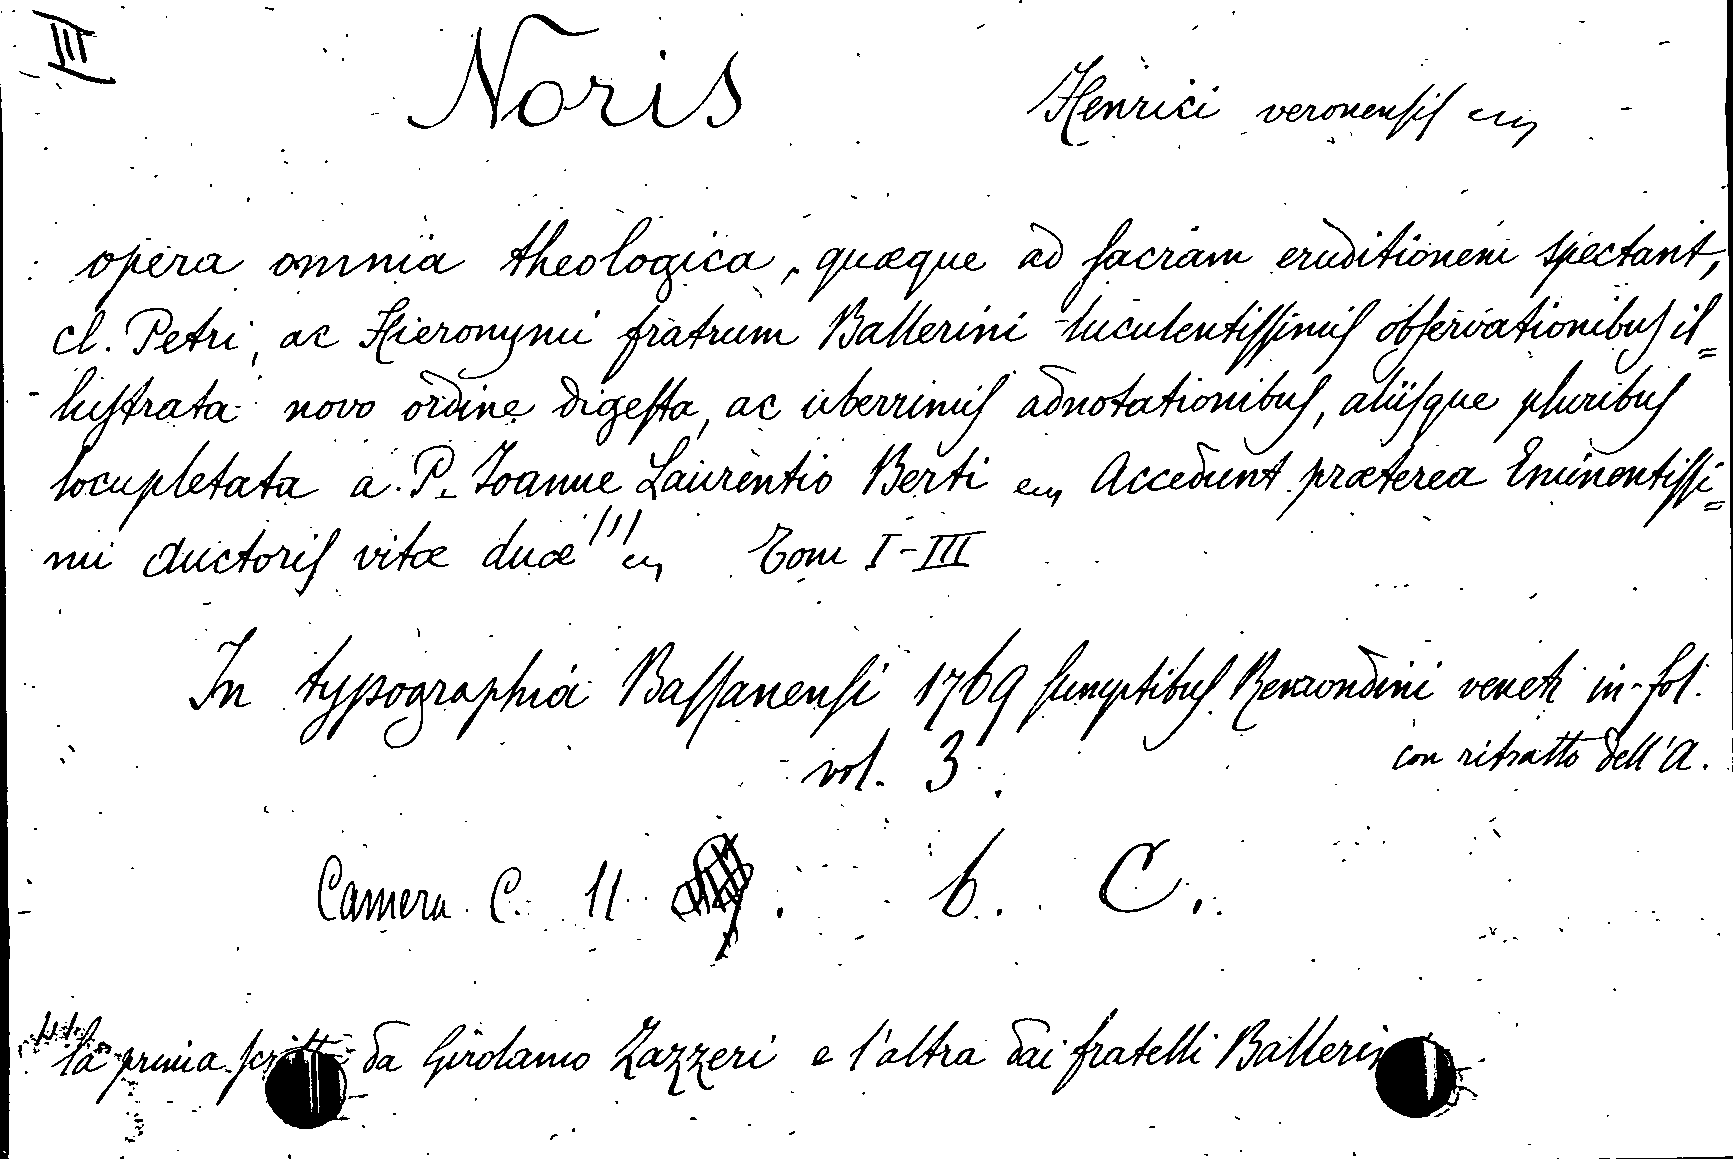 III
Noris Henrici veronensis ecc
opera omnia theologica, quæque ad sacram eruditionem spectant,
cl. Petri, ac Hieronymi fratrum Ballerini luculentissimis observationibus il=
lustrata novo ordine digesta, ac uberrimis adnotationibus, aliisque pluribus
locupletata a P. Ioanne Laurentio Berti ecc Accedunt præterea Eminentissi=
mi auctoris vitæ duæ (1) ecc Tom I-III
In typographia Bassanensi 1769 sumptibus Remondini veneti in-fol.
vol. 3. con ritratto dell'A.
Camera C. 11 . 6. C.
(1) la prima scritta da Girolamo Zazzeri e l'altra dai fratelli Ballerini